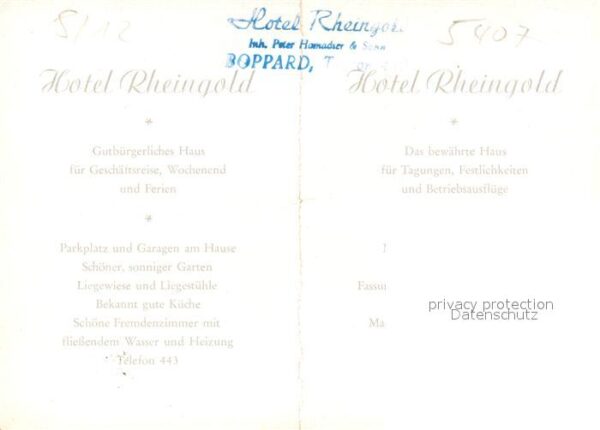 5/12
Hotel
Inh. Peter &
BOPPARD,
5407
Hotel Rheingold
*
Gutbürgerliches Haus
für Geschäftsreise, Wochenend
und Ferien
*
Parkplatz und Garagen am Hause
Schöner, sonniger Garten
Liegewiese und Liegestühle
Bekannt gute Küche
Schöne Fremdenzimmer mit
fließendem Wasser und Heizung
Telefon 443
Hotel Rheingold
*
Das bewährte Haus
für Tagungen, Festlichkeiten
und Betriebsausflüge
privacy protection
Datenschutz